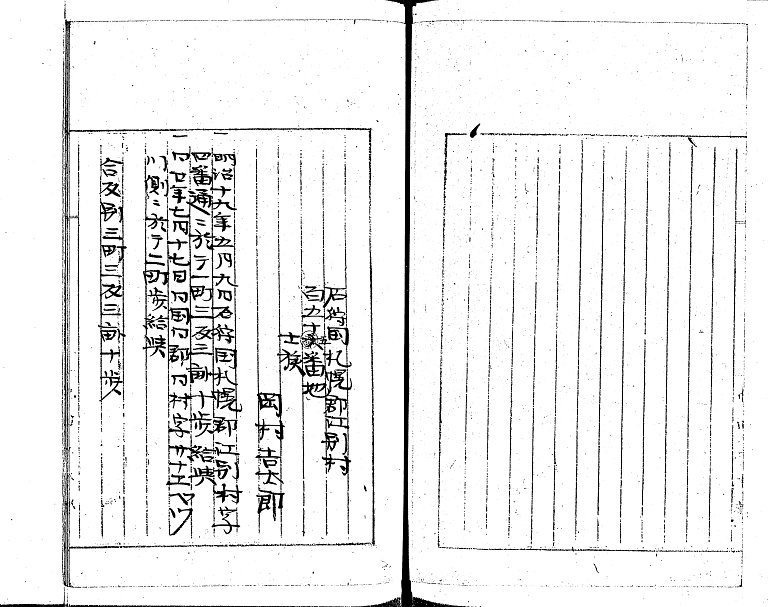 石狩国札幌郡江別村
百五十番地
士族
岡村吉太郎
一明治十九年五月九日石狩国札幌郡江別村字
四番通ニ於テ一町三反三畝十歩給与
一同廿年七月十七日同国同郡同村字サナエマツ
川側ニ於テ二町歩給与
合反別三町三反三畝十歩